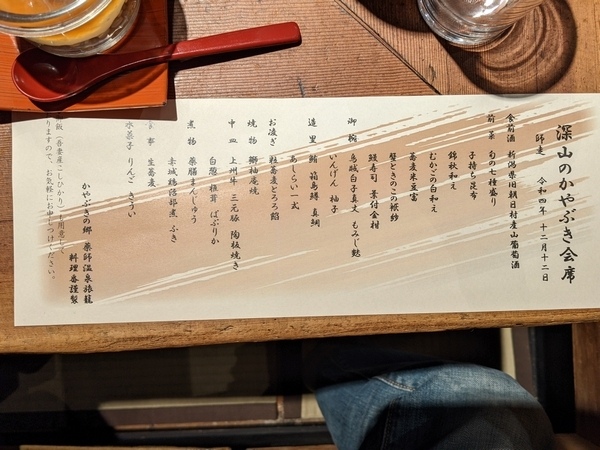 深山のかやぶき会席
師走　令和四年　十二月十二日
食前酒　新潟県旧朝日村産山葡萄酒
前菜　旬の七種盛り
子持ち昆布
錦秋和え
むかごの白和え
蕎麦米豆富
蟹ときのこの
鰻寿司　葉付金柑
御椀　烏賊白子真丈　もみじ麩
いんげん　柚子
造里　鮪　箱島鱒　真鯛
あしらい一式
お凌ぎ　粒蕎麦とろろ餡
焼物　鰤柚庵焼
中皿　上州牛　三元豚　陶板焼き
白葱　椎茸　ぱぷりか
煮物　薬膳まんじゅう
赤城鶏治部煮　ふき
食事　生蕎麦
水菓子　りんご　きうい
御飯（吾妻産こしひかり）も用意して
りますので、お気軽にお申しつけください。
かやぶきの郷　薬師温泉旅籠
料理番謹製